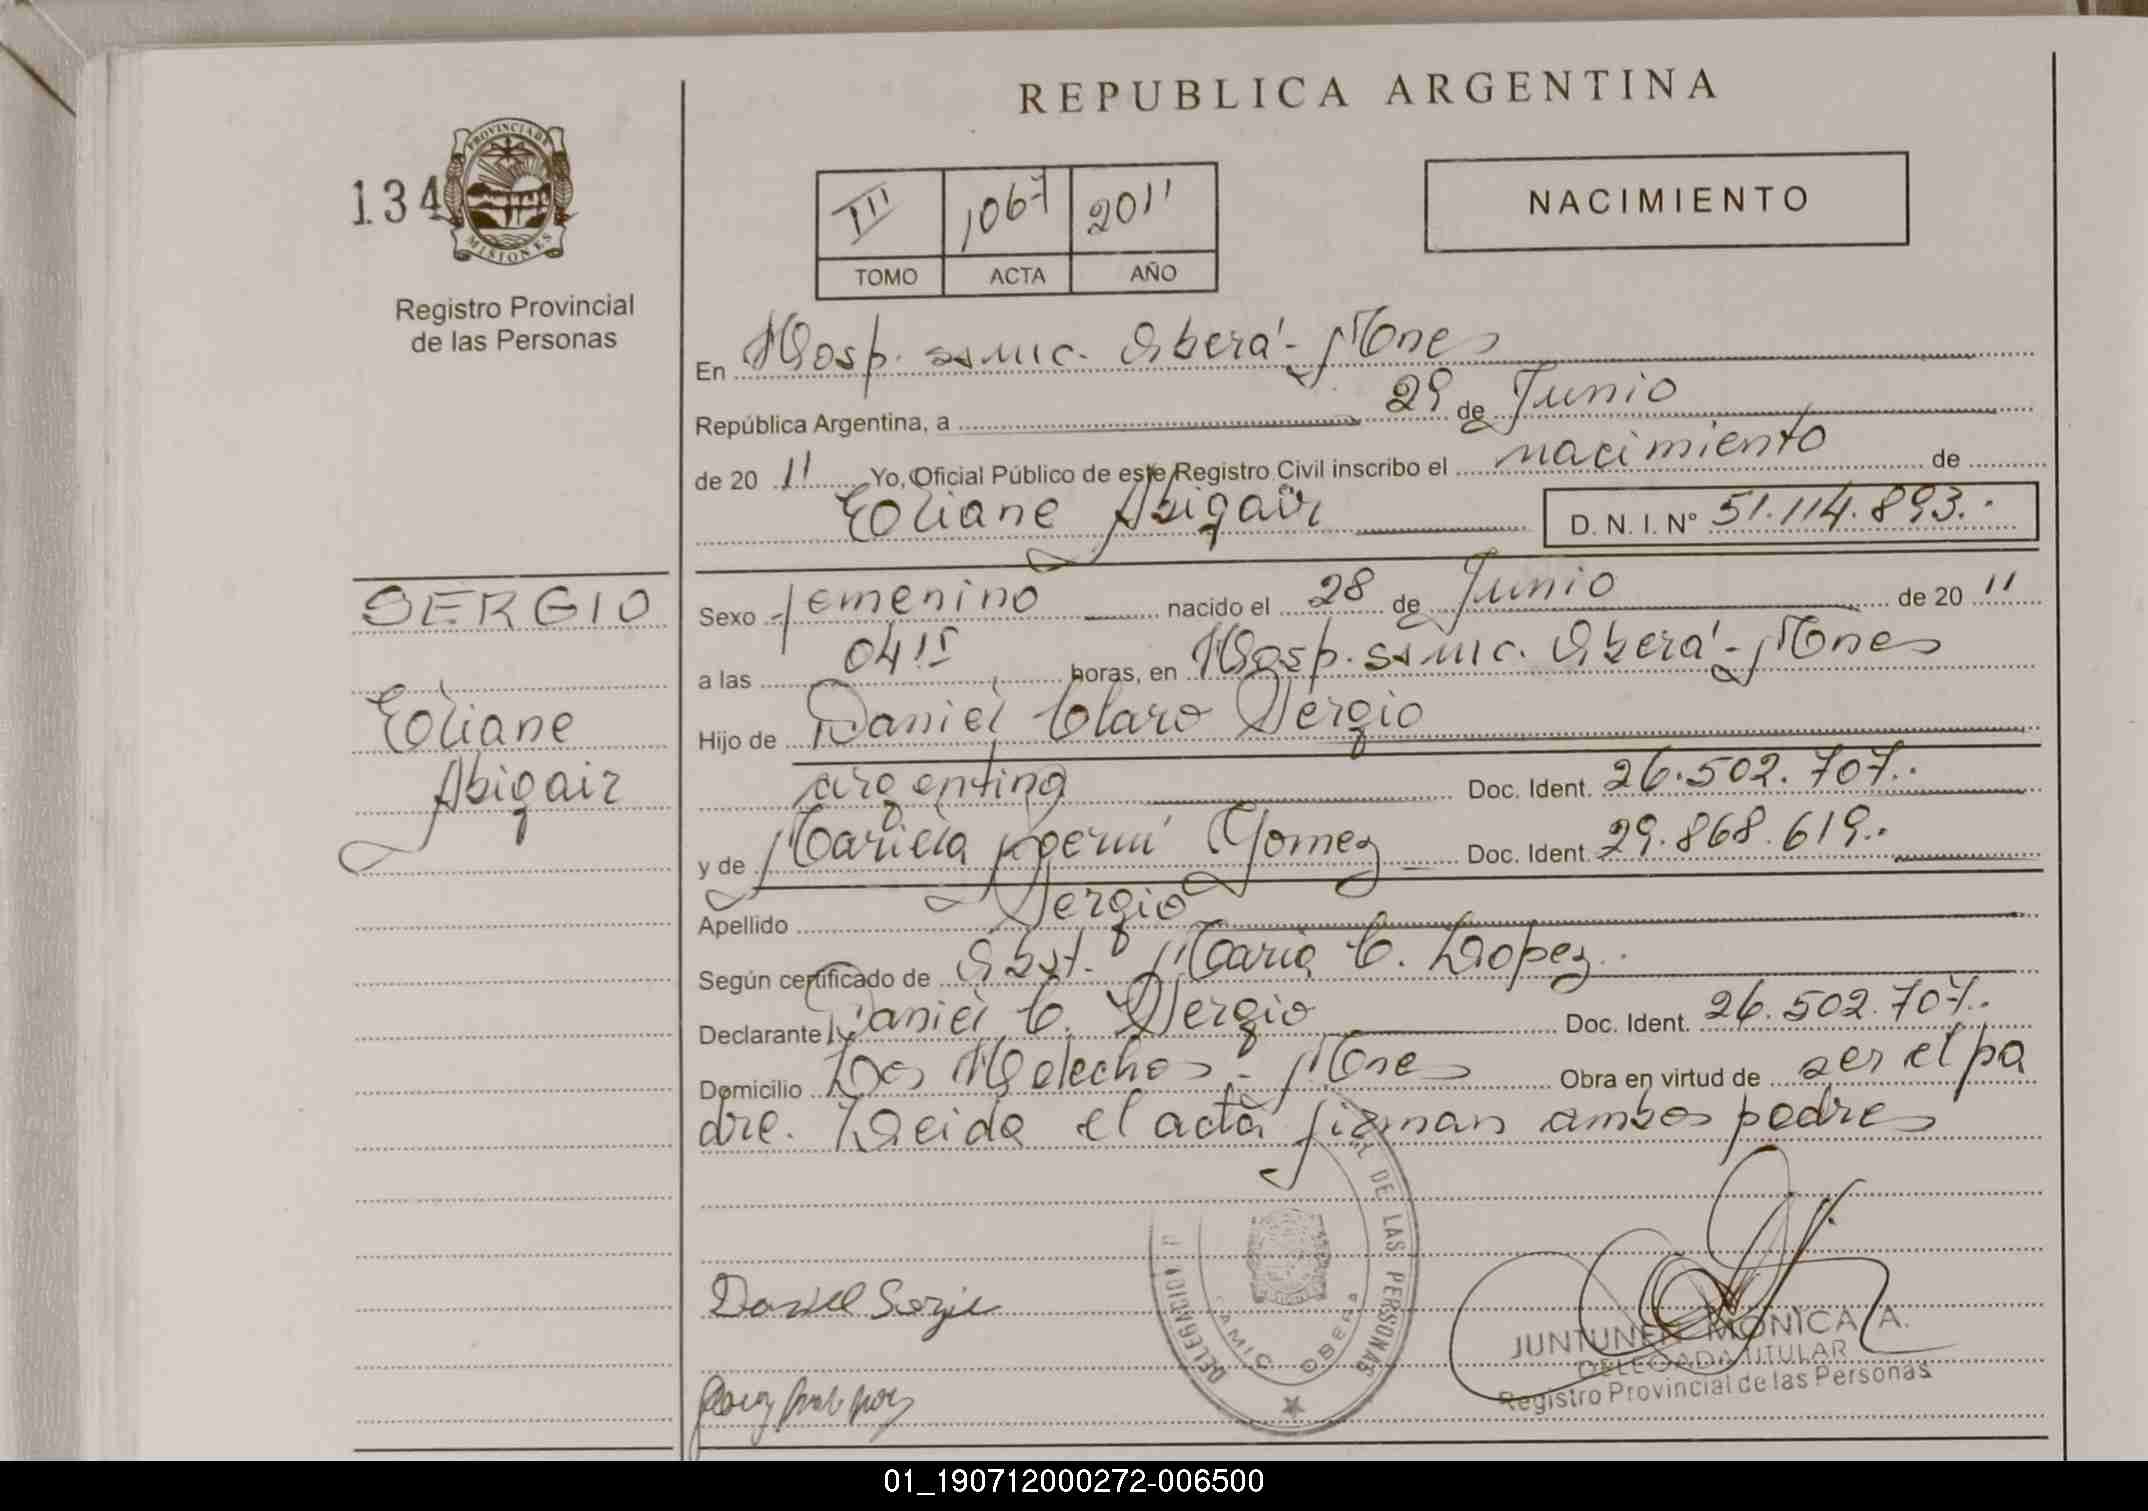 REPUBLICA ARGENTINA
134
PROVINCIA DE
MISIONES
Registro Provincial
de las Personas
III 1067 2011
TOMO ACTA AÑO
NACIMIENTO
En Hosp. ssmic. Oberá - Mnes
República Argentina, a 29 de Junio
de 20 11 Yo, Oficial Público de este Registro Civil inscribo el nacimiento de
Eliane Abigair D. N. I. Nº 51.114.893.
SERGIO
Eliane
Abigair
Sexo femenino nacido el 28 de Junio de 20 11
a las 04 15 horas, en Hosp. ssmic. Oberá - Mnes
Hijo de Daniel Claro Sergio
argentina Doc. Ident. 26.502.707.
y de Mariela Noemí Gomez Doc. Ident. 29.868.619.
Apellido Sergio
Según certificado de Obst. Maria C. Lopez.
Declarante Daniel C. Sergio Doc. Ident. 26.502.707.
Domicilio Los Helechos - Mnes Obra en virtud de ser el pa
dre. Leida el acta firman ambos padres
Daniel Sergio
DE LAS PERSONAS
DELEGACION
SAMIC OBERA
JUNTUNEN MONICA A.
DELEGADA TITULAR
Registro Provincial de las Personas
01_190712000272-006500